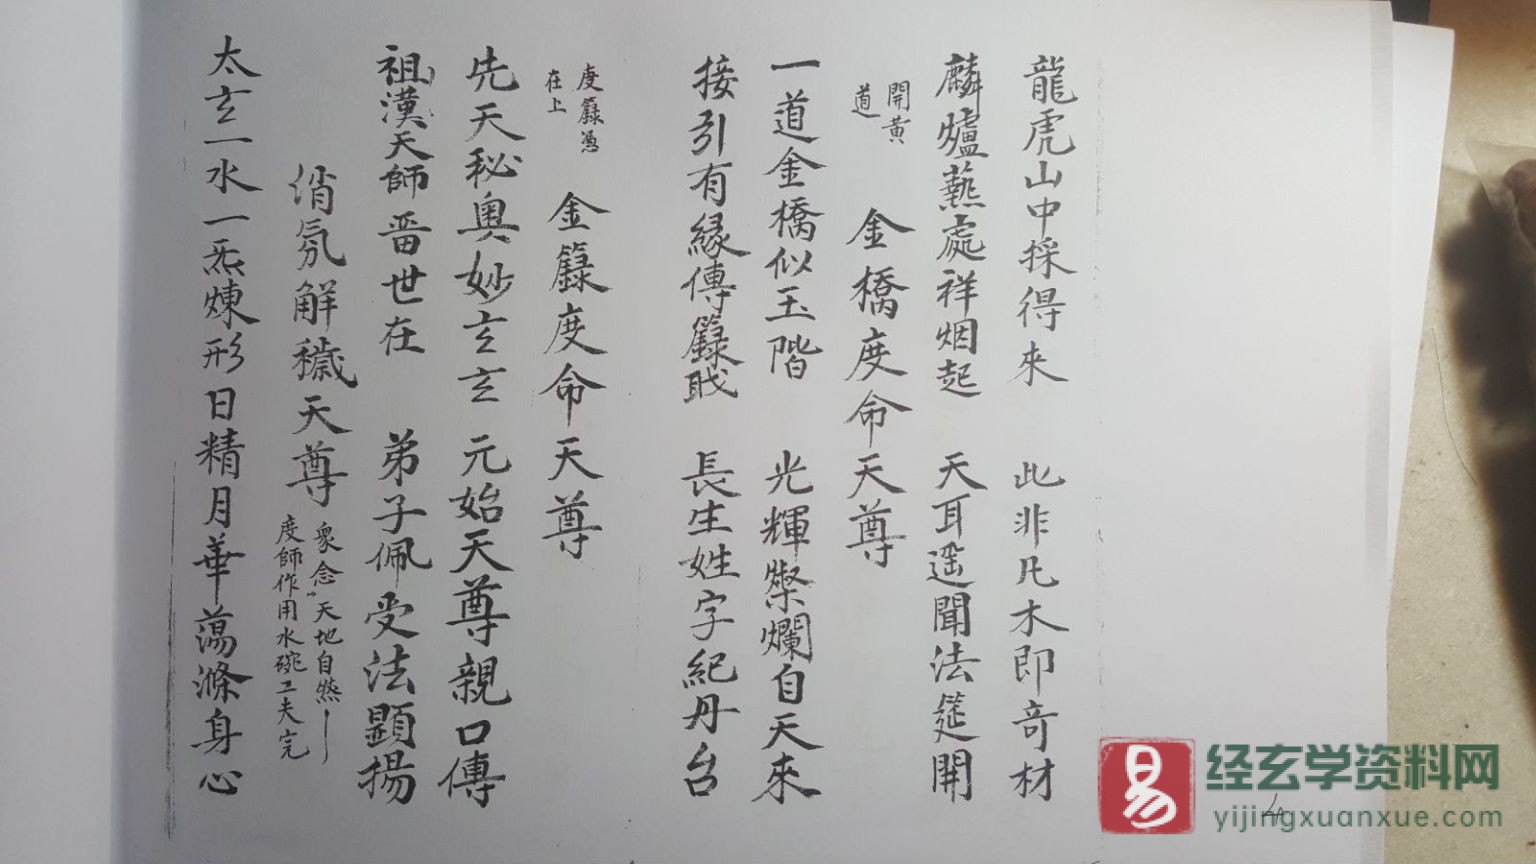 龍虎山中採得來　此非凡木即奇材
麟爐爇處祥烟起　天耳遥聞法筵開
開黃道
金橋度命天尊
一道金橋似玉階　光輝燦爛自天來
接引有緣傳籙職　長生姓字紀丹台
度籙憑在上
金籙度命天尊
先天秘奥妙玄玄　元始天尊親口傳
祖漢天師晋世在　弟子佩受法顯揚
消氛解穢天尊
衆念〝天地自然——
度師作用水碗工夫完
太玄一水一炁煉形日精月華蕩滌身心
易
经玄学资料网
yijingxuanxue.com